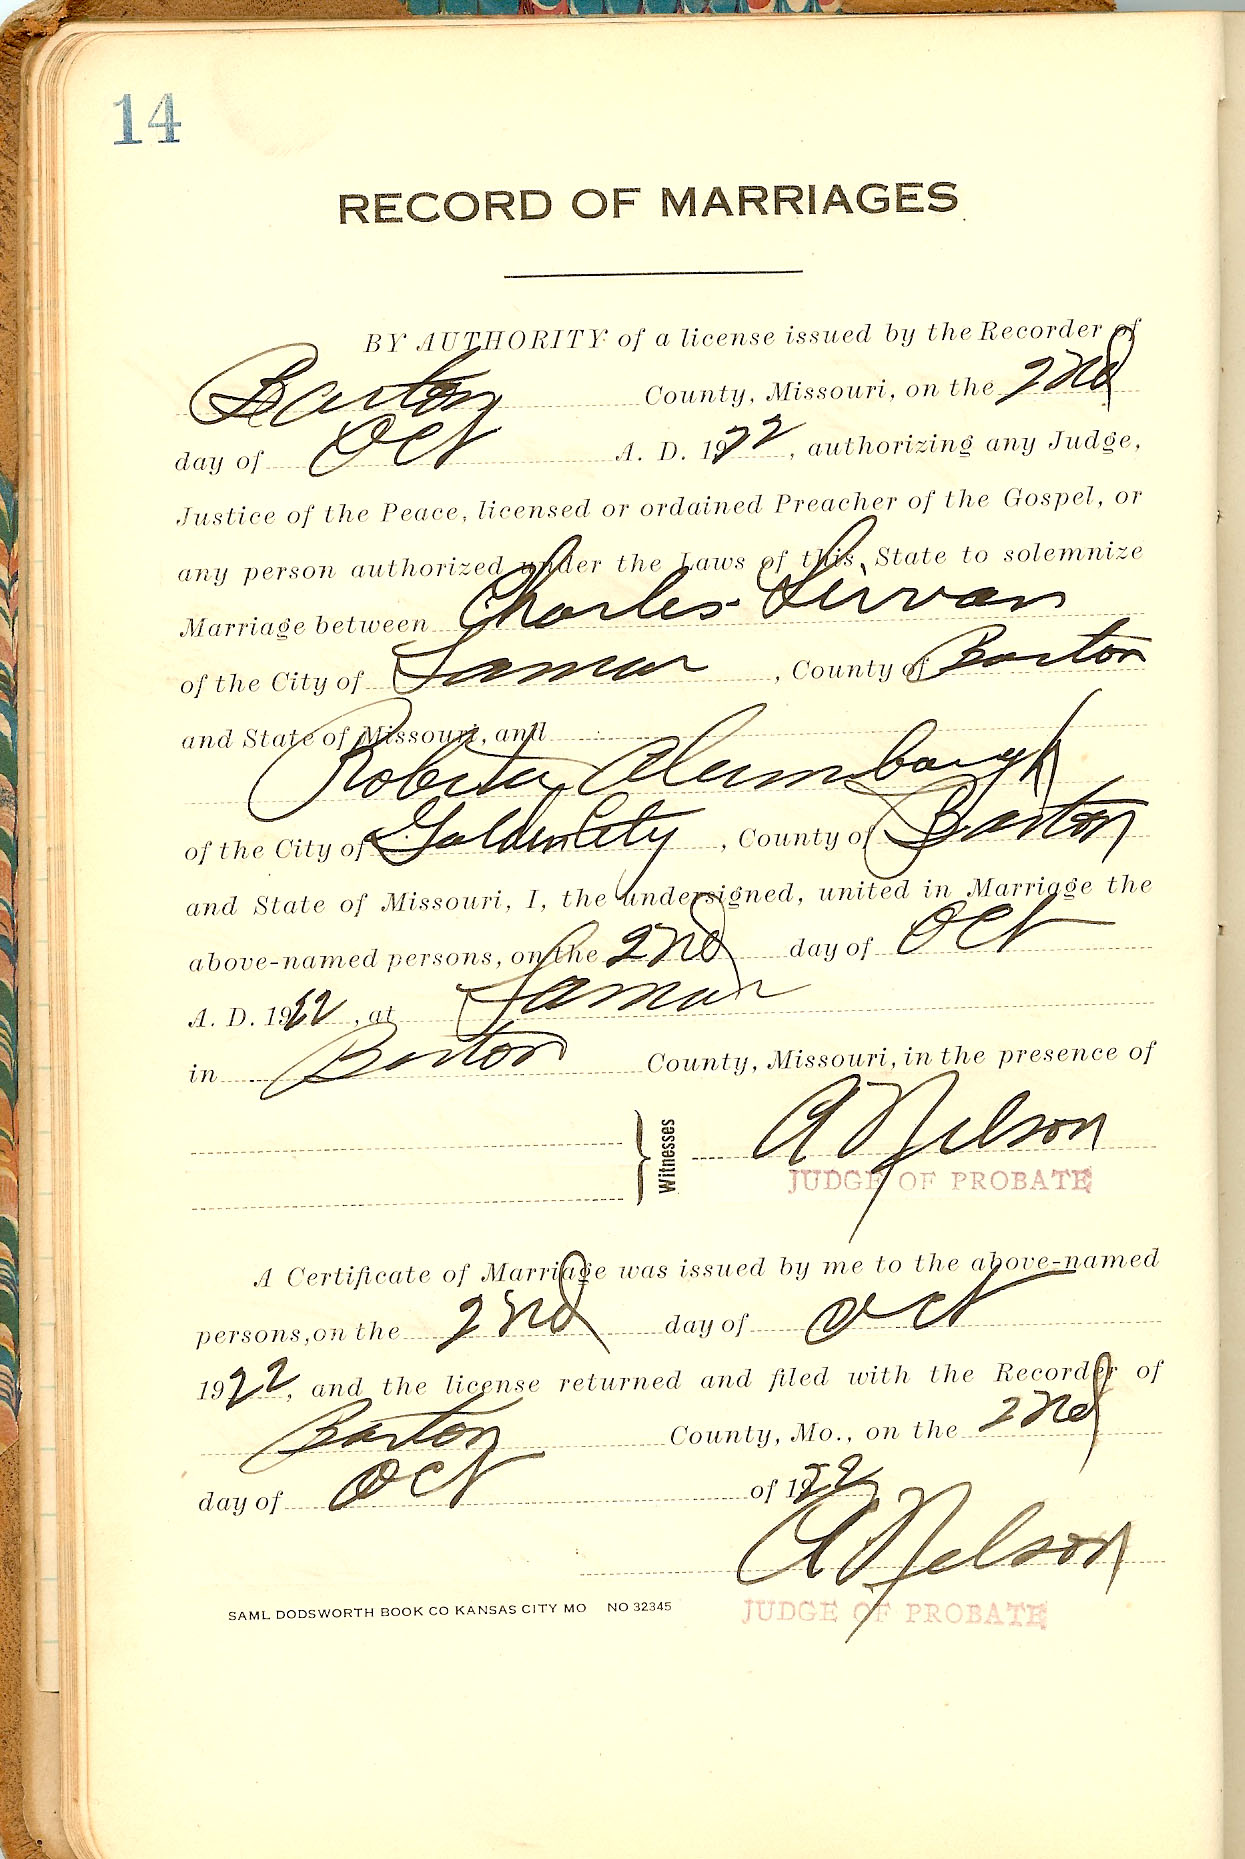 14
RECORD OF MARRIAGES
BY AUTHORITY of a license issued by the Recorder of
Barton County, Missouri, on the 2nd
day of Oct A. D. 1922, authorizing any Judge,
Justice of the Peace, licensed or ordained Preacher of the Gospel, or
any person authorized under the Laws of this State to solemnize
Marriage between Charles
of the City of Lamar, County of Barton
and State of Missouri, and
Roberta Alumbaugh
of the City of Golden City, County of Barton
and State of Missouri, I, the undersigned, united in Marriage the
above-named persons, on the 2nd day of Oct
A. D. 1922, at Lamar
in Barton County, Missouri, in the presence of
Witnesses A Nelson
JUDGE OF PROBATE
A Certificate of Marriage was issued by me to the above-named
persons, on the 2nd day of Oct
1922, and the license returned and filed with the Recorder of
Barton County, Mo., on the 2nd
day of Oct of 1922
A Nelson
SAML DODSWORTH BOOK CO KANSAS CITY MO NO 32345 JUDGE OF PROBATE